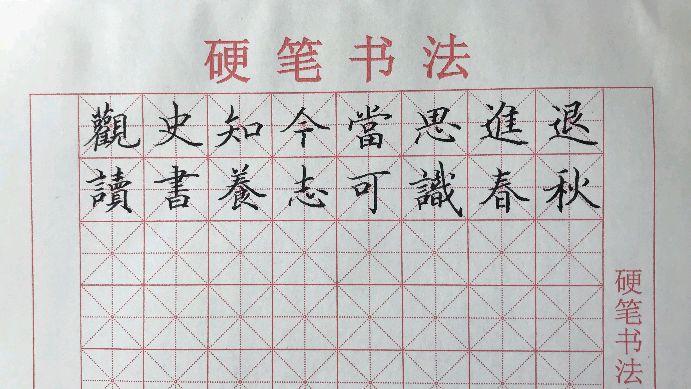 硬笔书法
觀史知今當思進退
讀書養志可識春秋
硬笔书法